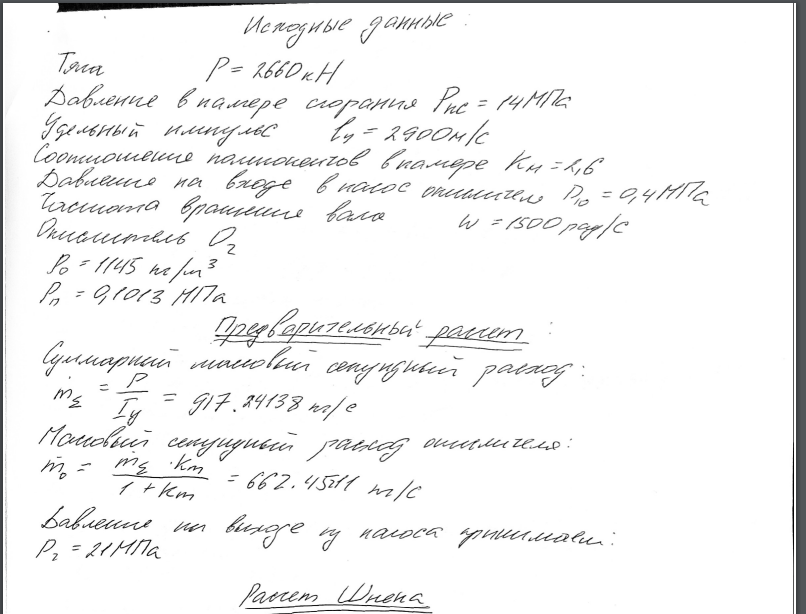 Исходные данные :
Тяга P = 2660 кН
Давление в камере сгорания Pкс = 14 МПа
Удельный импульс Iу = 2900 м/с
Соотношение компонентов в камере Km = 2,6
Давление на входе в насос окислителя P10 = 0,4 МПа
Частота вращение вала w = 1500 рад/с
Окислитель O2
ρо = 1145 кг/м³
Pп = 0,1013 МПа
Предварительный расчет :
Суммарный массовый секундный расход :
ṁΣ = P / Iу = 917.24138 кг/с
Массовый секундный расход окислителя :
ṁо = ṁΣ · Km / 1 + Km = 662.45211 кг/с
Давление на выходе из насоса принимаем :
P2 = 21 МПа
Расчет Шнека